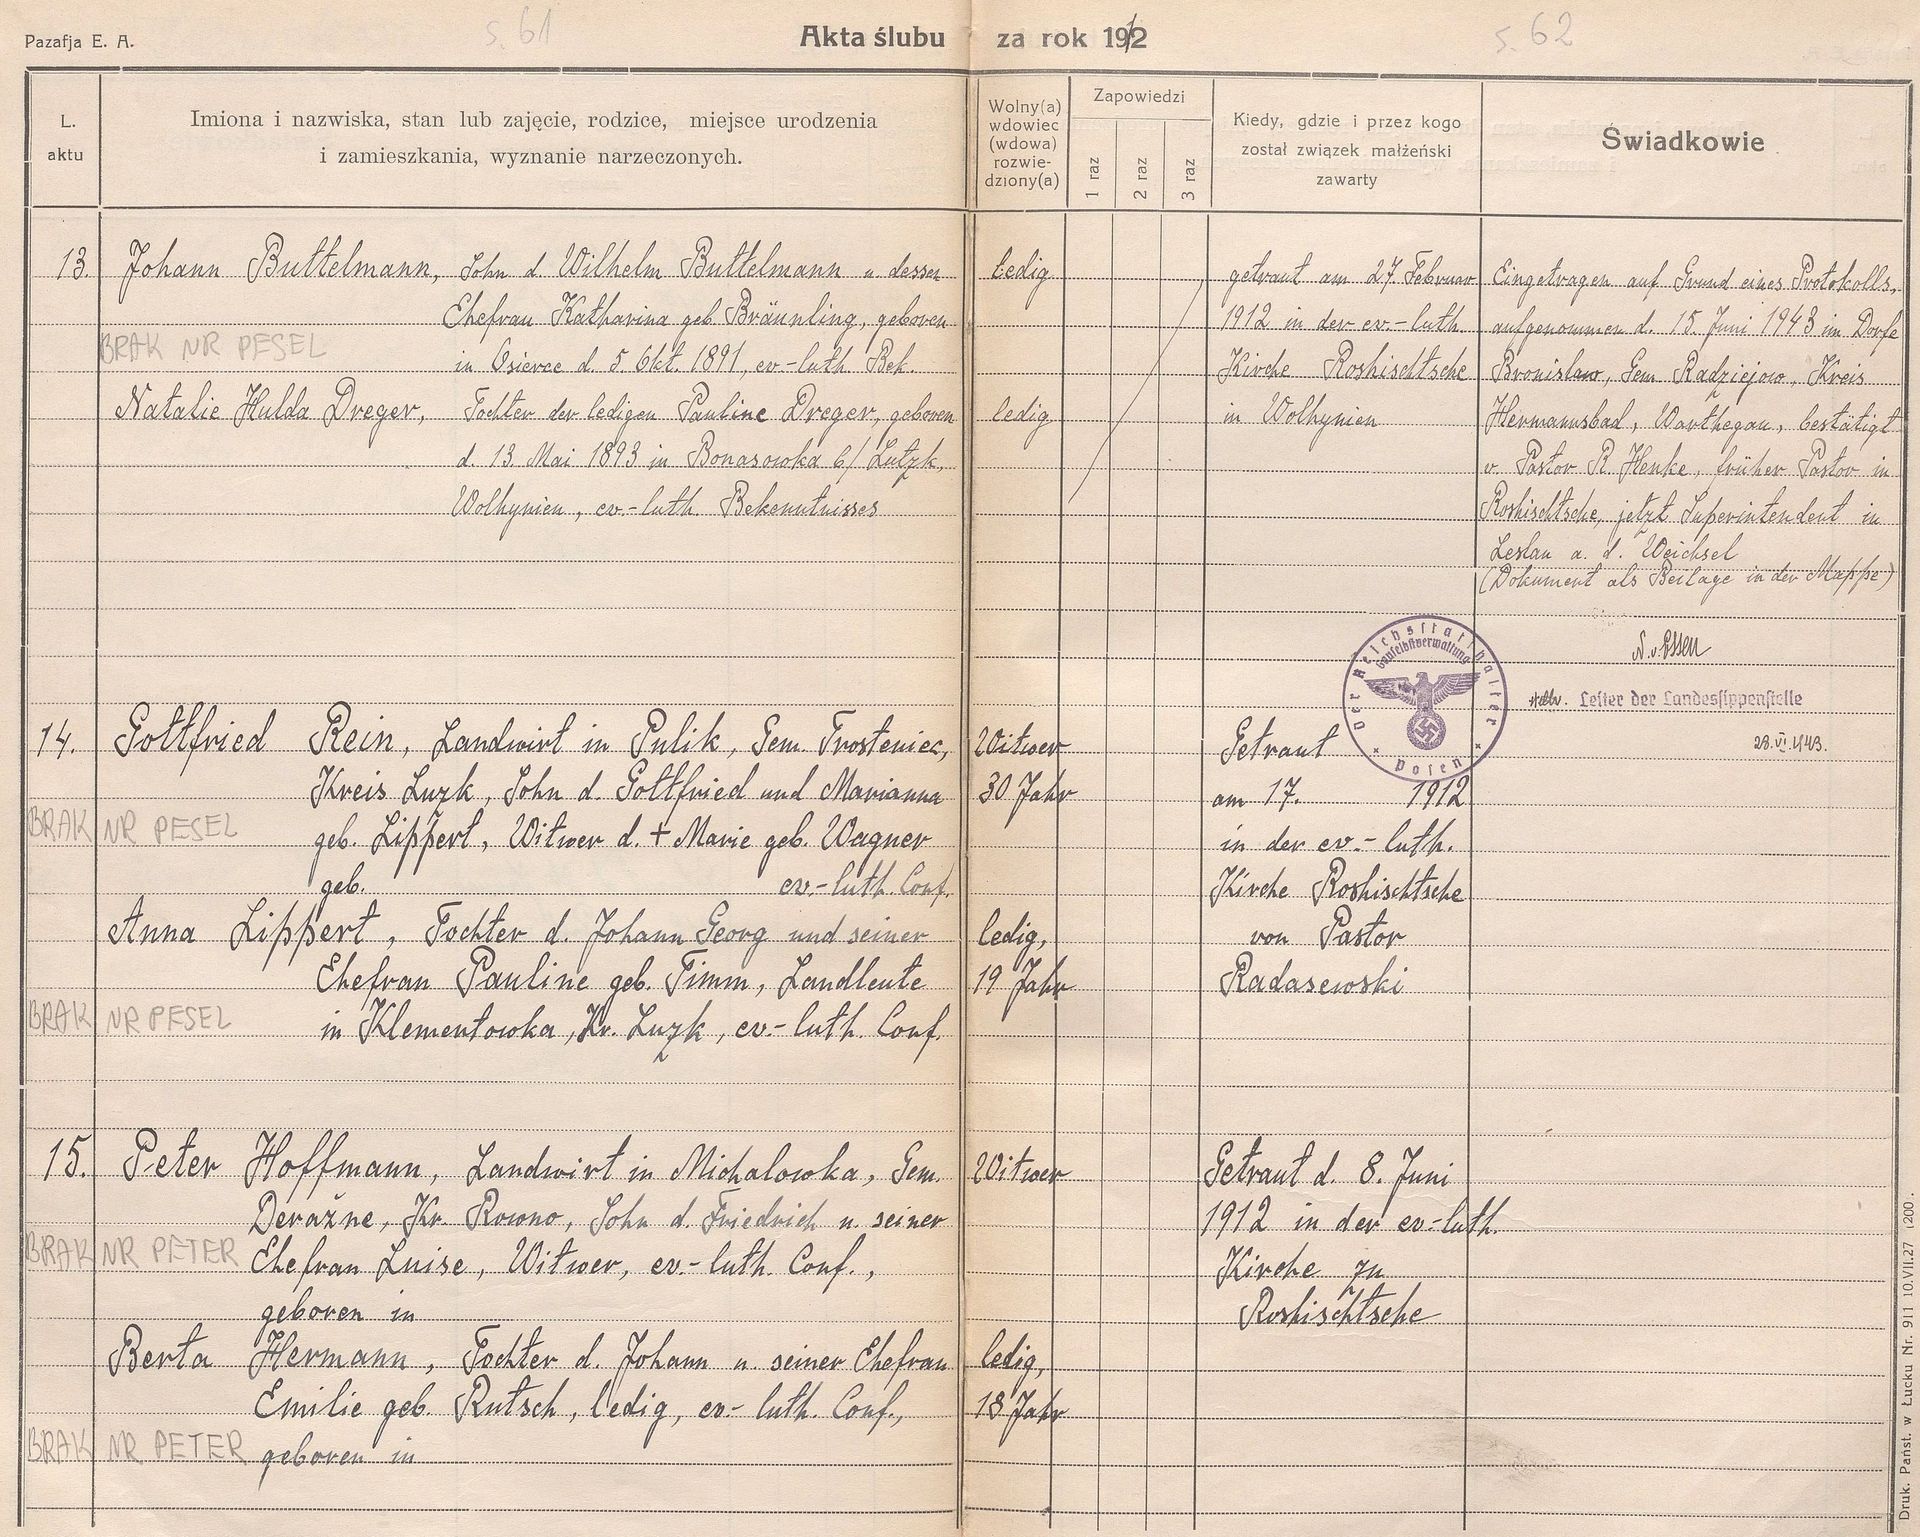 Pazafja E. A.
s. 61
Akta ślubu za rok 1912
s. 62
L. aktu
Imiona i nazwiska, stan lub zajęcie, rodzice, miejsce urodzenia
i zamieszkania, wyznanie narzeczonych.
Wolny(a)
wdowiec
(wdowa)
rozwie-
dziony(a)
Zapowiedzi
1 raz
2 raz
3 raz
Kiedy, gdzie i przez kogo
został związek małżeński
zawarty
Świadkowie
13. Johann Buttelmann, Sohn d. Wilhelm Buttelmann u. dessen
Ehefrau Katharina geb. Bräunling, geboren
BRAK NR PESEL
in Osierce d. 5 Okt. 1891, ev-luth. Bek.
Natalie Hulda Dreger, Tochter der ledigen Pauline Dreger, geboren
d. 13. Mai 1893 in Bonasowka b/ Lutzk,
Wolhynien, ev.-luth. Bekenntnisses
ledig
ledig
getraut am 27. Februar
1912 in der ev.-luth.
Kirche Roshischtsche
in Wolhynien
Eingetragen auf Grund eines Protokolls,
aufgenommen d. 15. Juni 1943 im Dorfe
Bronislaw, Gem. Radziejow, Kreis
Hermannsbad, Warthegau, bestätigt
v. Pastor R. Henke, früher Pastor in
Roshischtsche, jetzt Superintendent in
Leslau a. d. Weichsel
(Dokument als Beilage in der Mappe)
Der Reichsstatthalter
Gauselbstverwaltung
Posen
N. v. Essen
stellv. Leiter der Landessippenstelle
28. VI. 1943.
14. Gottfried Rein, Landwirt in Pulik, Gem. Trosteniec,
Kreis Luzk, Sohn d. Gottfried und Marianna
BRAK NR PESEL
geb. Lippert, Witwer d. + Marie geb. Wagner
geb. ev.-luth. Conf.
Anna Lippert, Tochter d. Johann Georg und seiner
Ehefrau Pauline geb. Timm, Landleute
BRAK NR PESEL
in Klementowka, Kr. Luzk, ev.-luth. Conf.
Witwer
30 Jahr
ledig,
19 Jahr
Getraut
am 17. 1912
in der ev.-luth.
Kirche Roshischtsche
von Pastor
Radasewski
15. Peter Hoffmann, Landwirt in Michalowka, Gem.
Deražne, Kr. Rowno, Sohn d. Friedrich u. seiner
BRAK NR PETER
Ehefrau Luise, Witwer, ev.-luth. Conf.,
geboren in
Berta Hermann, Tochter d. Johann u. seiner Ehefrau
Emilie geb. Rutsch, ledig, ev.-luth. Conf.,
BRAK NR PETER
geboren in
Witwer
ledig,
18 Jahr
Getraut d. 8. Juni
1912 in der ev-luth.
Kirche zu
Roshischtsche
Druk. Państ. w Łucku Nr. 911 10.VII.27 1200.